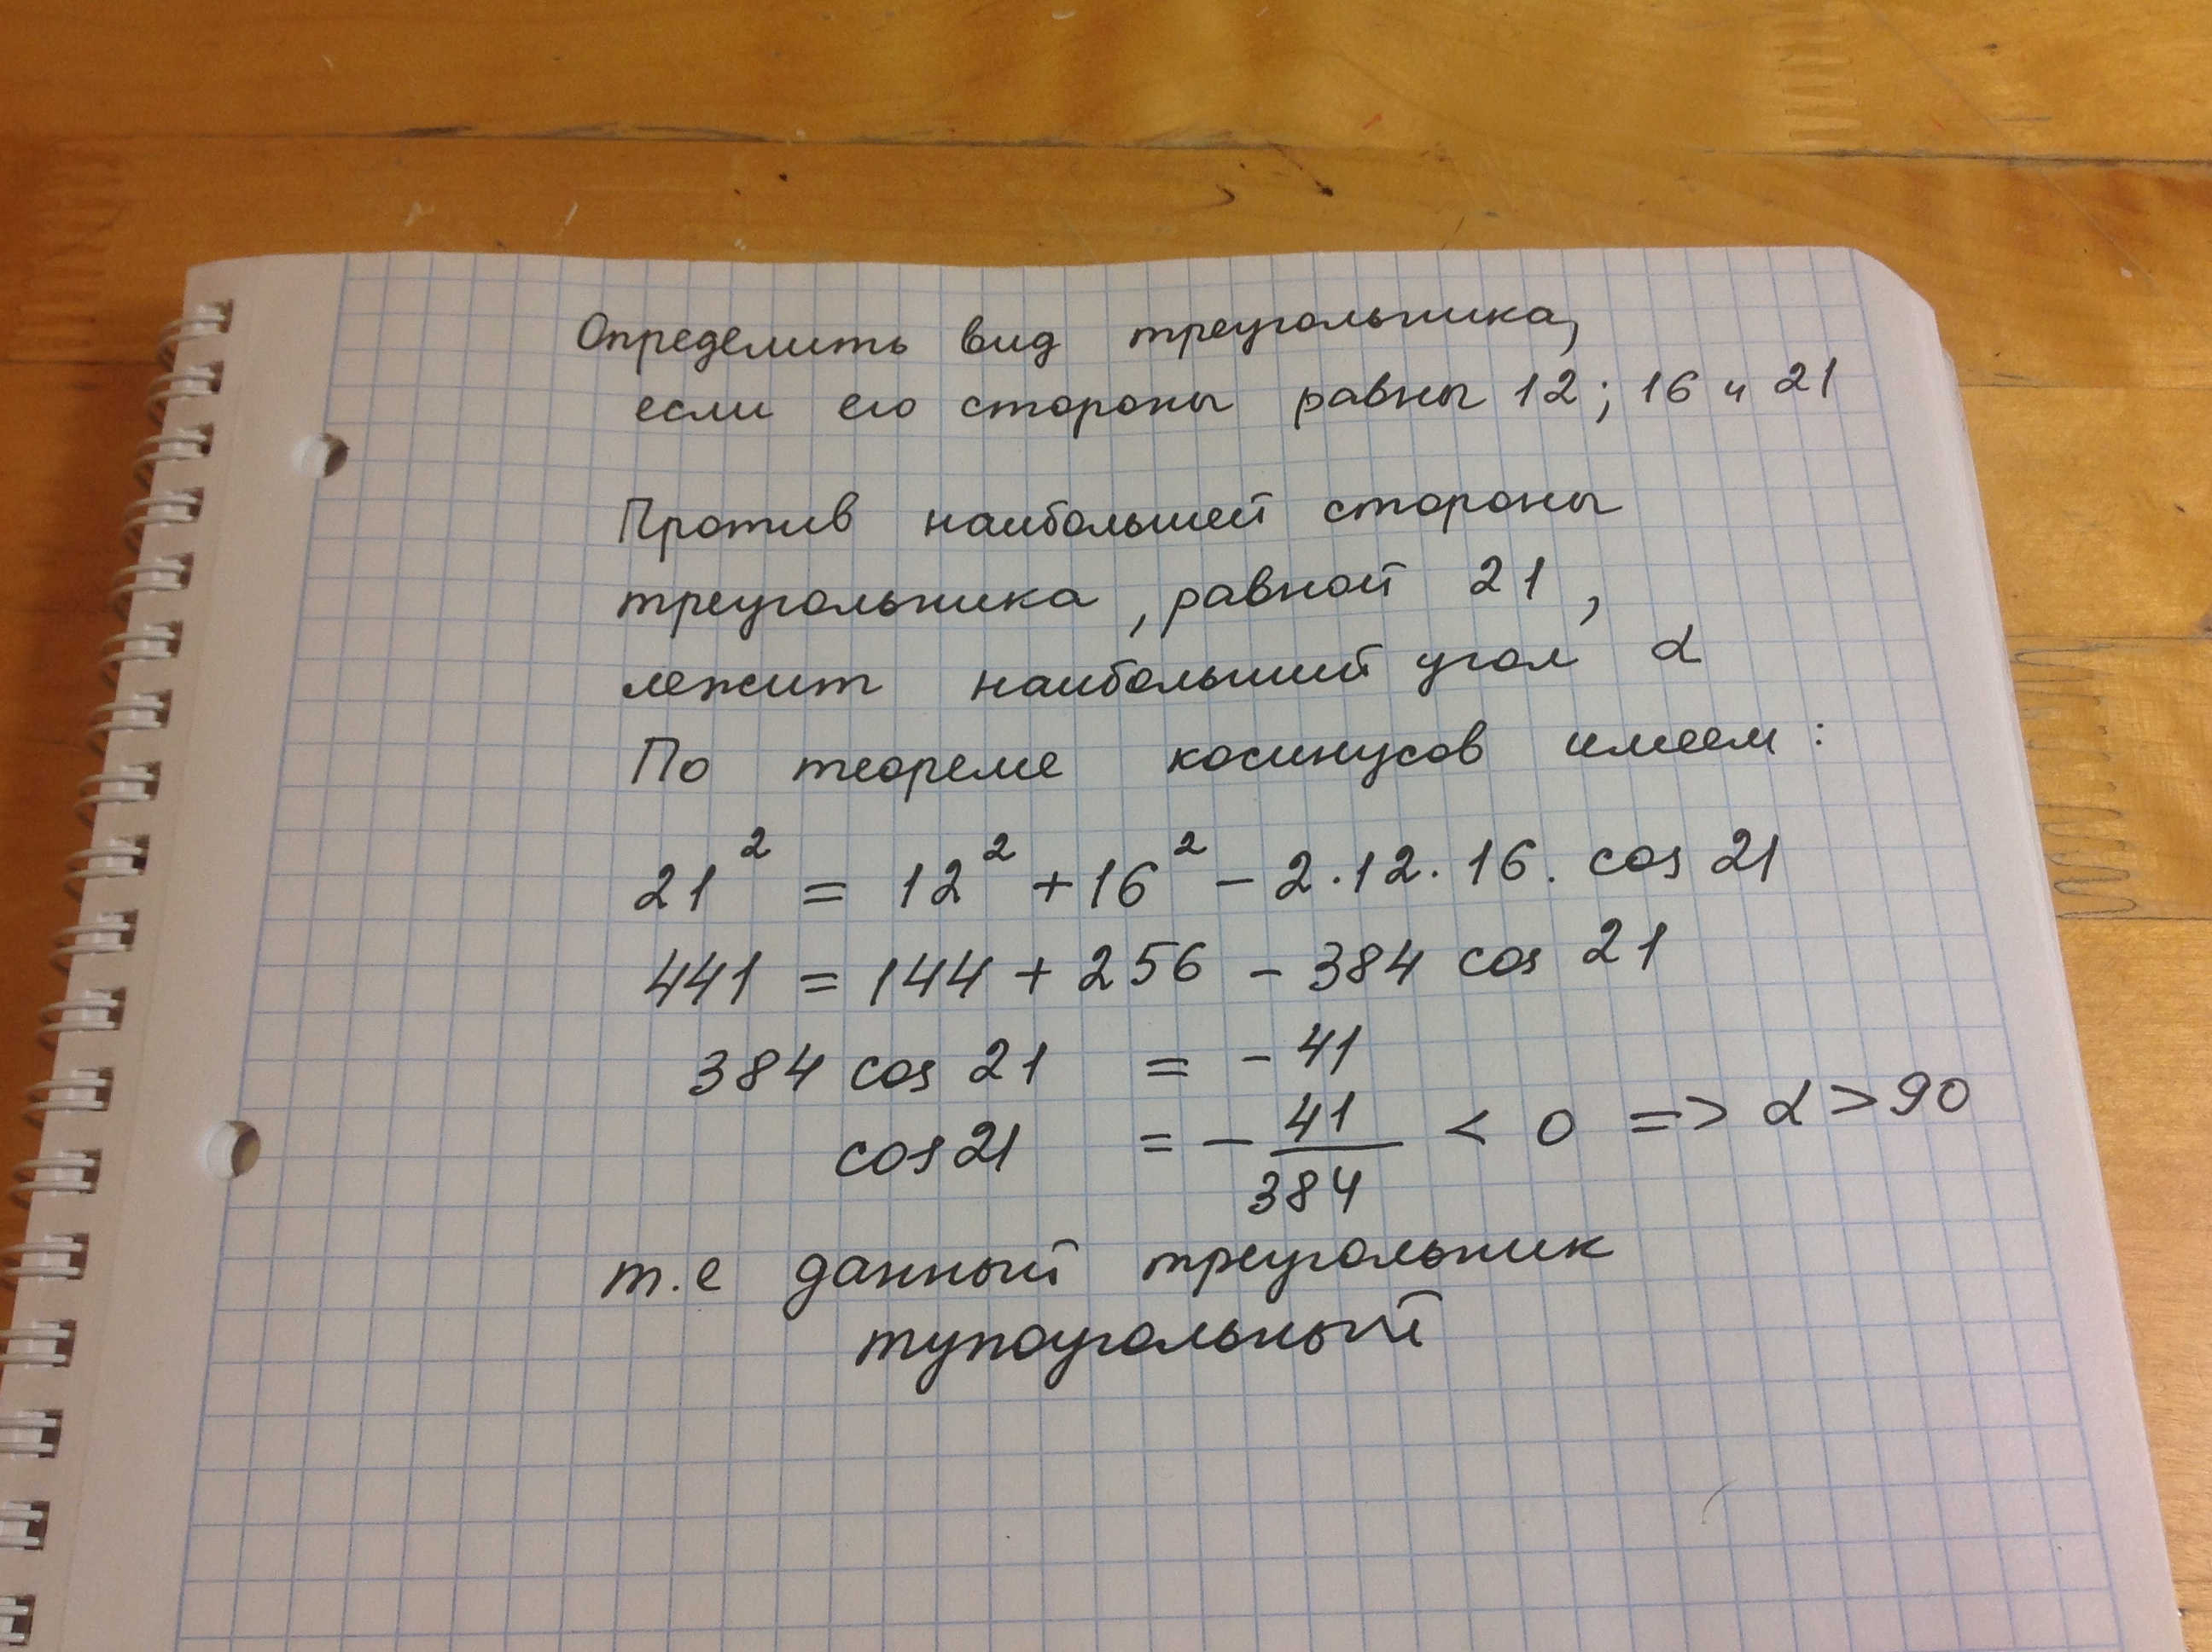 Определить вид треугольника,
если его стороны равны 12; 16 и 21
Против наибольшей стороны
треугольника, равной 21,
лежит наибольший угол α
По теореме косинусов имеем:
21² = 12² + 16² - 2·12·16· cos 21
441 = 144 + 256 - 384 cos 21
384 cos 21 = - 41
cos 21 = - 41/384 < 0 => α > 90
т.е данный треугольник
тупоугольный